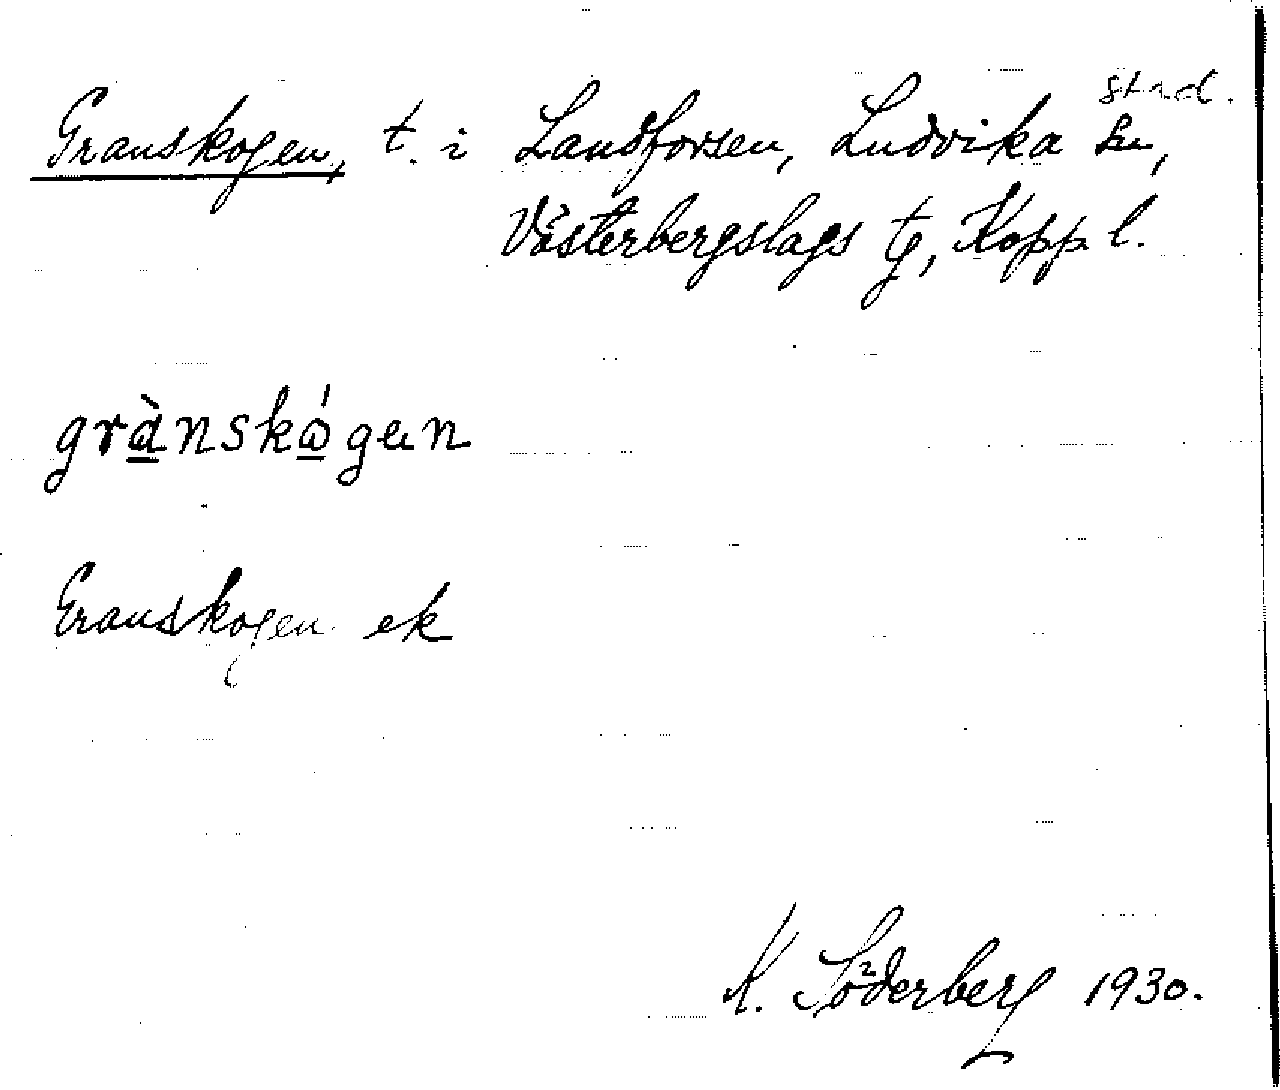 stad.
Granskogen, t. i Landforsen, Ludvika sn,
Västerbergslags tg, Kopp l.
grànskógen
Granskogen ek
K. Söderberg 1930.